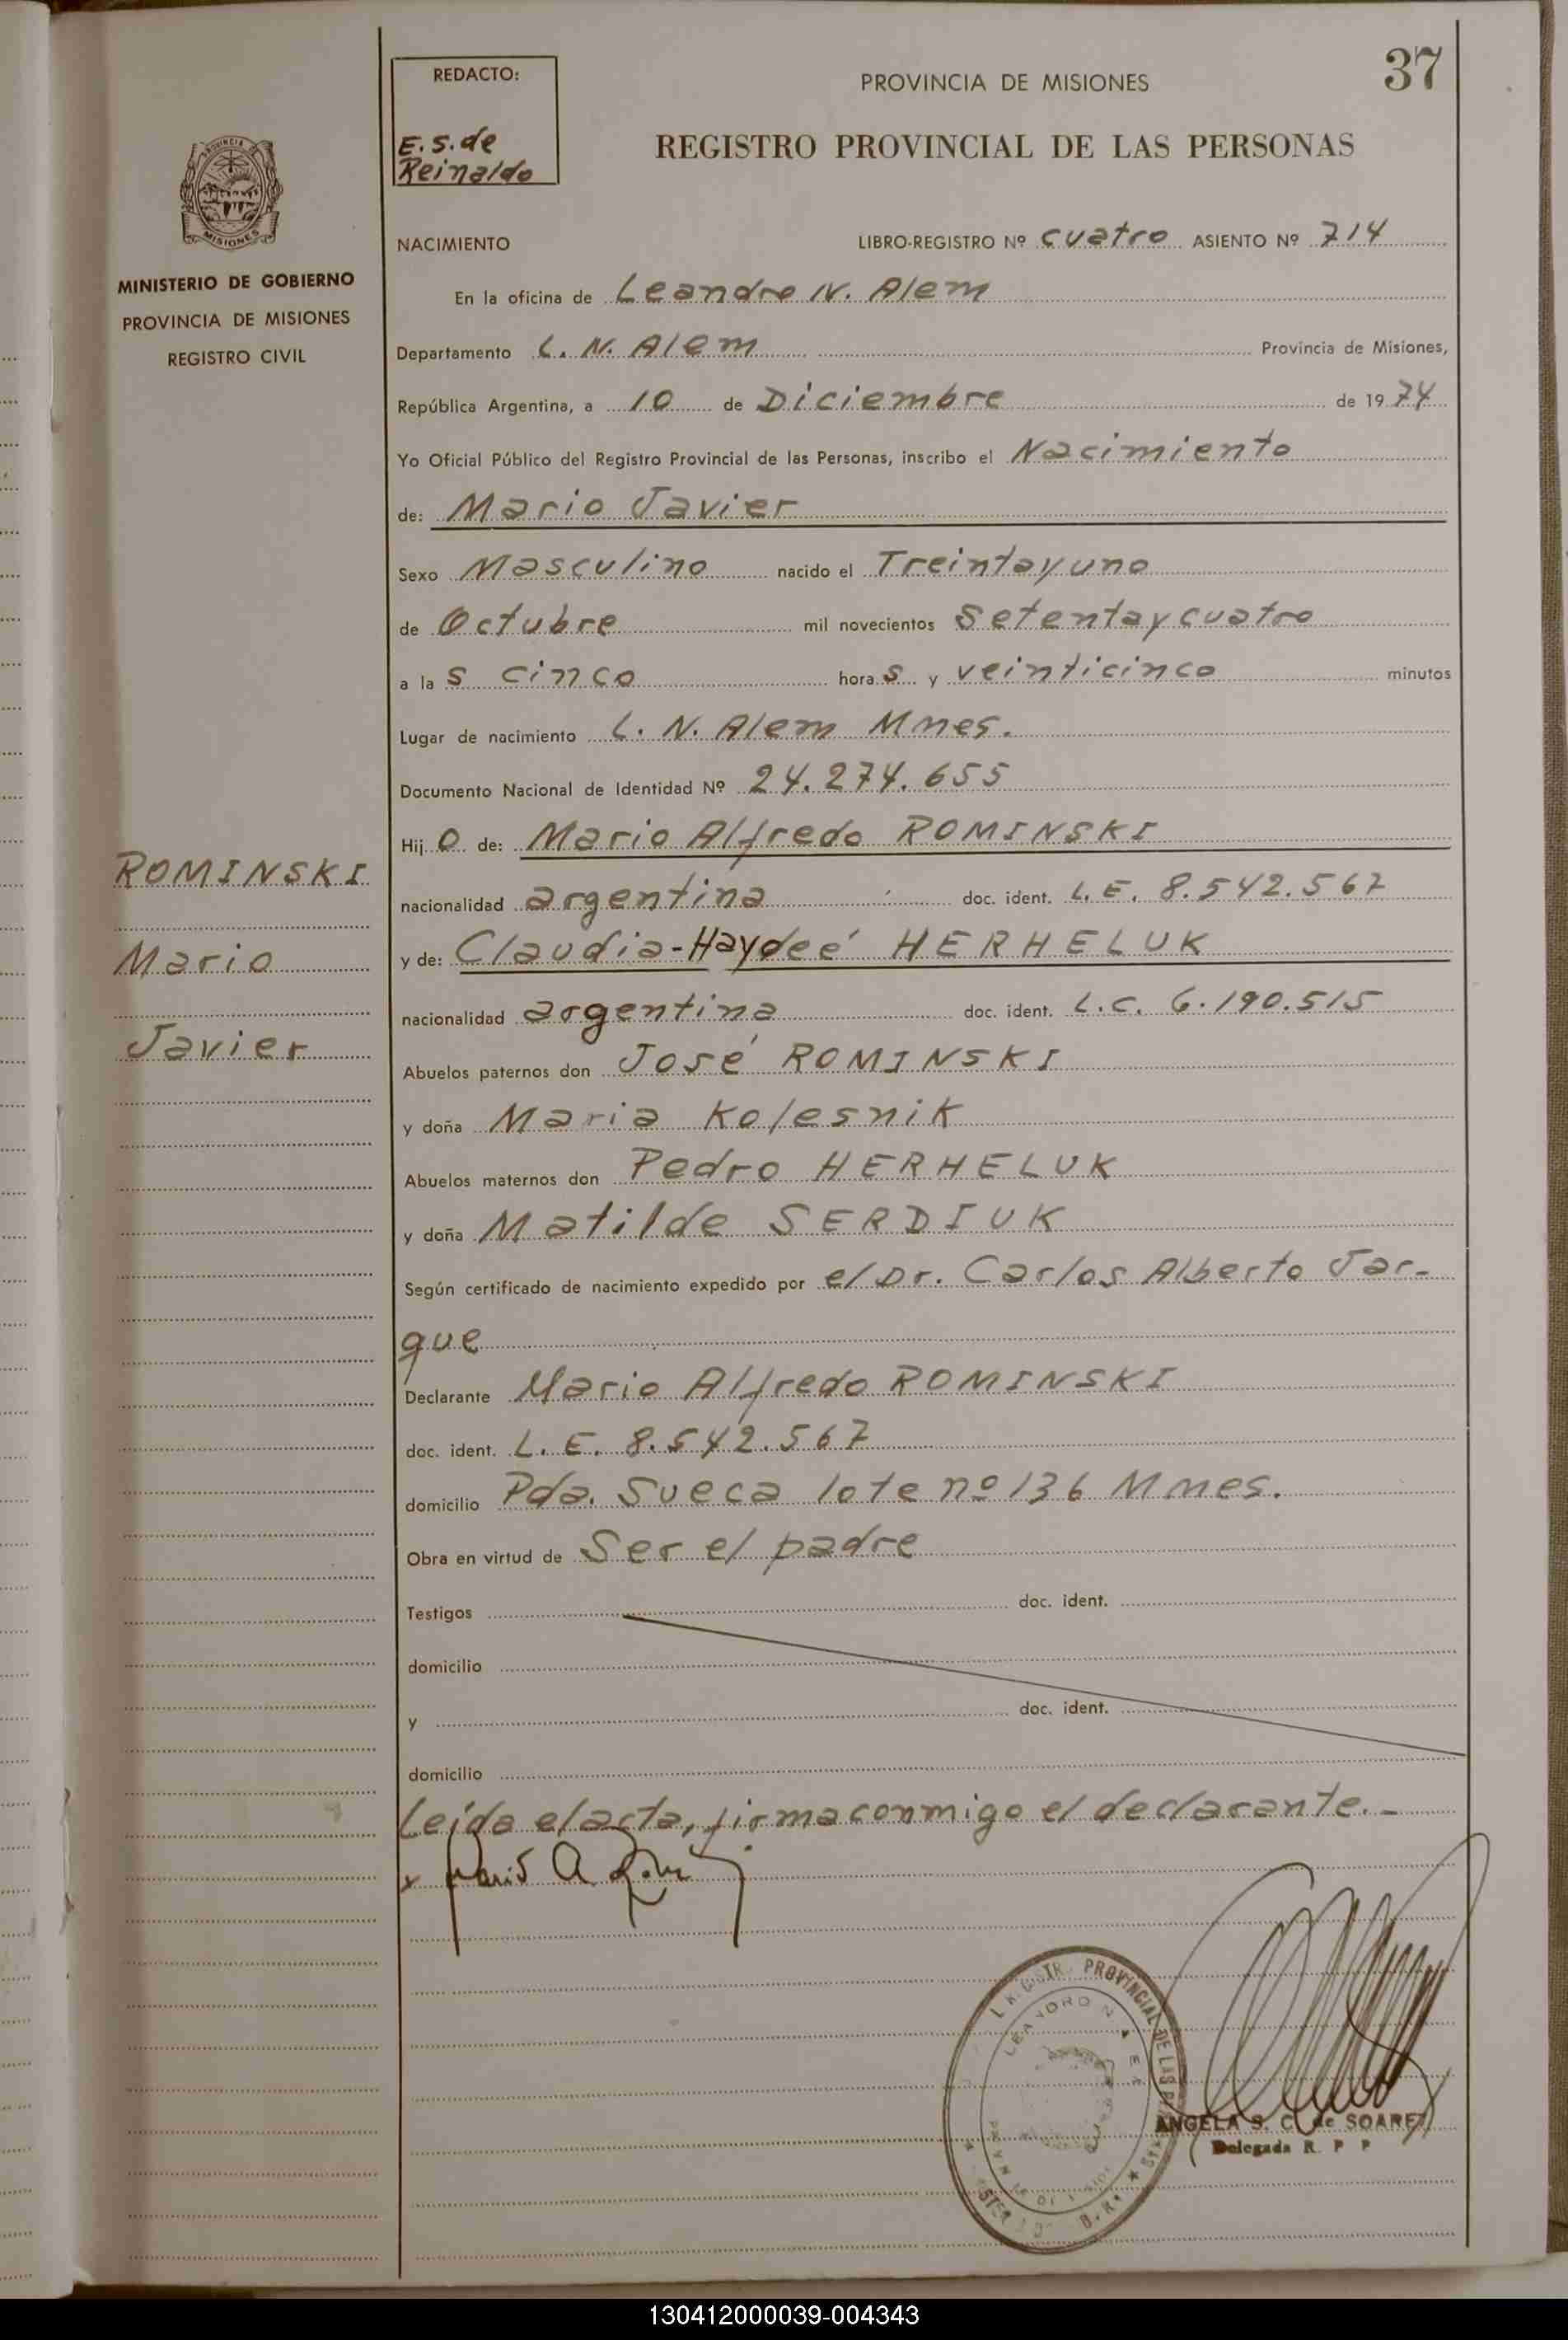 37
REDACTO:
E. S. de
Reinaldo
PROVINCIA DE MISIONES
REGISTRO PROVINCIAL DE LAS PERSONAS
PROVINCIA DE
MISIONES
MINISTERIO DE GOBIERNO
PROVINCIA DE MISIONES
REGISTRO CIVIL
NACIMIENTO
LIBRO-REGISTRO Nº cuatro ASIENTO Nº 714
En la oficina de Leandro N. Alem
Departamento L. N. Alem Provincia de Misiones,
República Argentina, a 10 de Diciembre de 1974
Yo Oficial Público del Registro Provincial de las Personas, inscribo el Nacimiento
de: Mario Javier
Sexo Masculino nacido el Treintayuno
de Octubre mil novecientos Setentaycuatro
a las cinco horas y veinticinco minutos
Lugar de nacimiento L. N. Alem Mnes.
Documento Nacional de Identidad Nº 24.274.655
Hijo de: Mario Alfredo ROMINSKI
nacionalidad argentina doc. ident. L.E. 8.542.567
y de: Claudia-Haydeé HERHELUK
nacionalidad argentina doc. ident. L.C. 6.190.515
Abuelos paternos don José ROMINSKI
y doña Maria Kolesnik
Abuelos maternos don Pedro HERHELUK
y doña Matilde SERDIUK
Según certificado de nacimiento expedido por el Dr. Carlos Alberto Jar-
que
Declarante Mario Alfredo ROMINSKI
doc. ident. L. E. 8.542.567
domicilio Pda. Sueca lote nº 136 Mnes.
Obra en virtud de Ser el padre
Testigos doc. ident.
domicilio
y doc. ident.
domicilio
Leída el acta, firma conmigo el declarante.-
ROMINSKI
Mario
Javier
x Mario A
PROVINCIAL DE LAS
LEANDRO N
ANGELA S. C. de SOAREZ
Delegada R P P
130412000039-004343